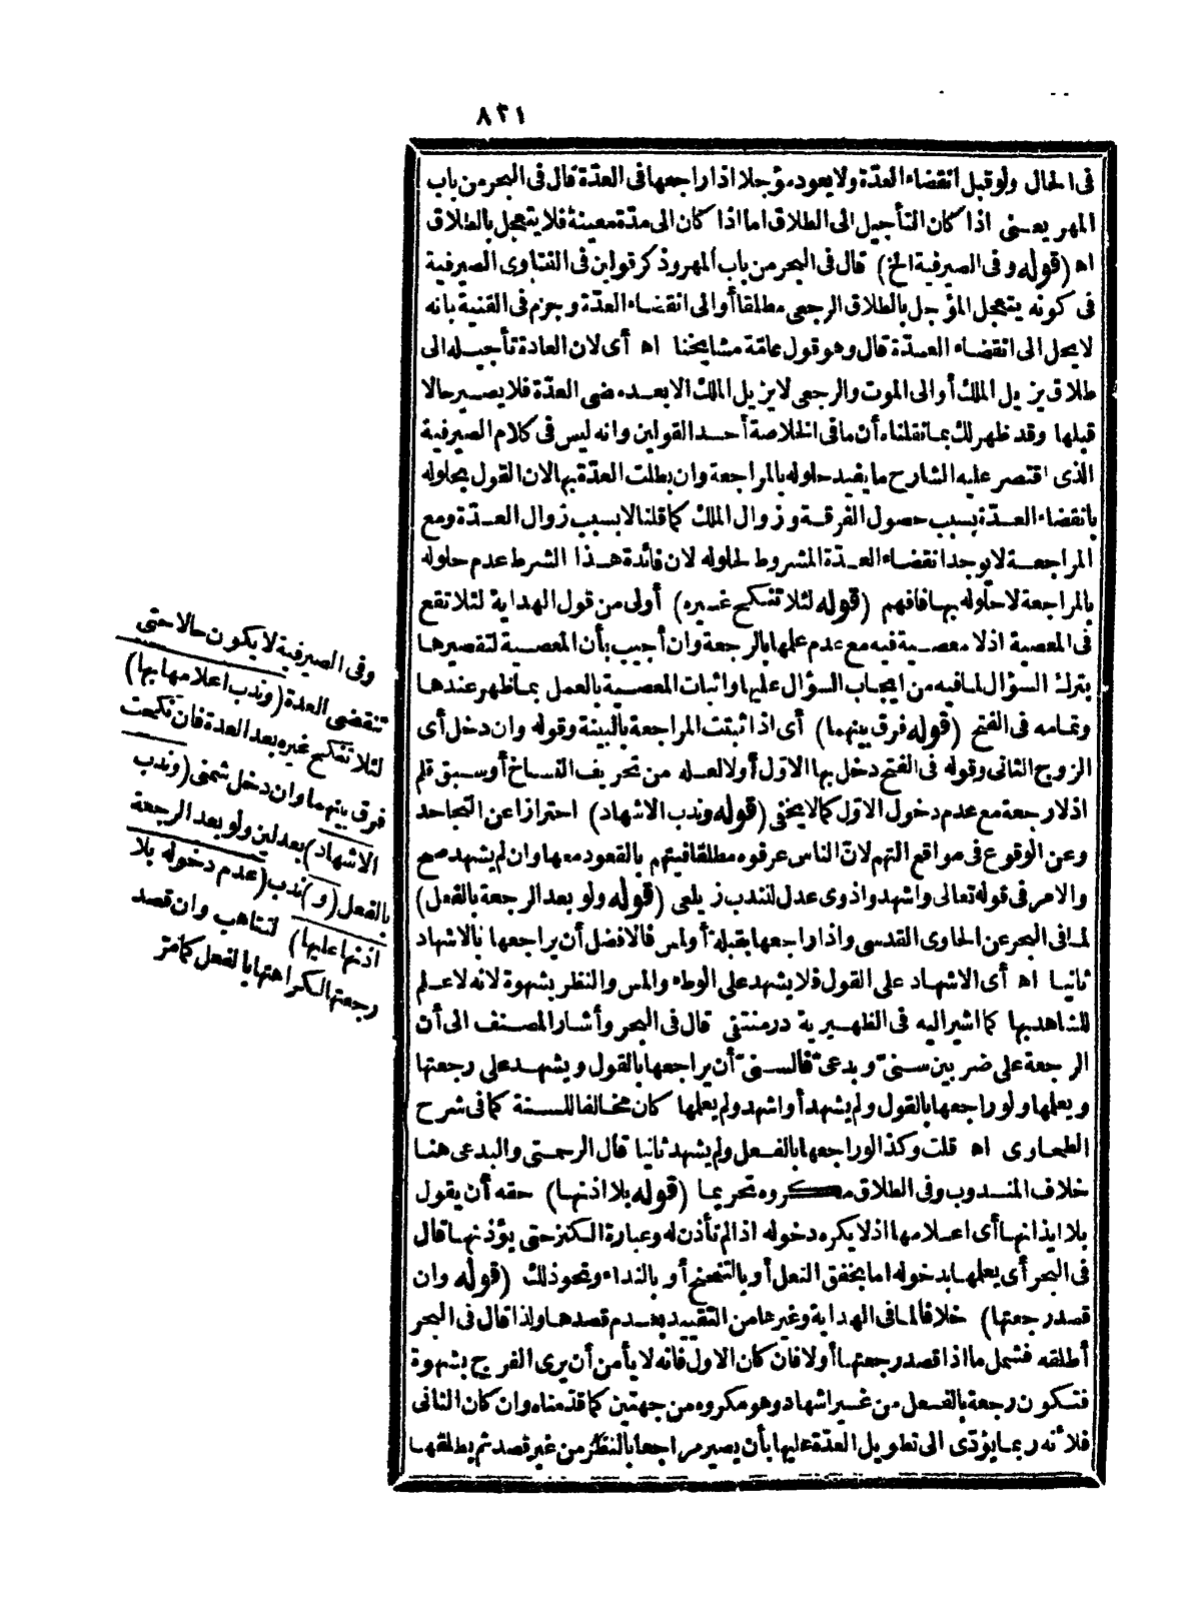 ٨٣١
فى الحال ولو قبل انقضاء العدّة ولا يعود مؤجلا اذا راجعها فى العدّة قال فى البحر من باب
المهر يعنى اذا كان التأجيل الى الطلاق اما اذا كان الى مدّة معينة فلا يتعجل بالطلاق
اه (قوله وفى الصيرفية الخ) قال فى البحر من باب المهر وذكر قولين فى الفتاوى الصيرفية
فى كونه يتعجل المؤجل بالطلاق الرجعى مطلقا أو الى انقضاء العدّة وجزم فى القنية بانه
لا يحل الى انقضاء العدّة قال وهو قول عامّة مشايخنا اه أى لان العادة تأجيله الى
طلاق يزيل الملك أو الى الموت والرجعى لا يزيل الملك الا بعد مضى العدّة فلا يصير حالا
قبلها وقد ظهر لك بما نقلناه أن ما فى الخلاصة أحد القولين وانه ليس فى كلام الصيرفية
الذى اقتصر عليه الشارح ما يفيد حلوله بالمراجعة وان بطلت العدّة بها لان القول بحلوله
بانقضاء العدّة بسبب حصول الفرقة وزوال الملك كما قلنا لا بسبب زوال العدّة ومع
المراجعة لا يوجد انقضاء العدّة المشروط لحلوله لان فائدة هذا الشرط عدم حلوله
بالمراجعة لا حلوله بها فافهم (قوله لئلا تنكح غيره) أولى من قول الهداية لئلا تقع
فى المعصية اذ لا معصية فيه مع عدم علمها بالرجعة وان أجيب بأن المعصية لتقصيرها
بترك السؤال لما فيه من ايجاب السؤال عليها واثبات المعصية بالعمل بما ظهر عندها
وتمامه فى الفتح (قوله فرق بينهما) أى اذا ثبتت المراجعة بالبينة وقوله وان دخل أى
الزوج الثانى وقوله فى الفتح دخل بها الاوّل أولا لعله من تحريف النساخ أو سبق قلم
اذ لا رجعة مع عدم دخول الاوّل كما لا يخفى (قوله وندب الاشهاد) احترازا عن التجاحد
وعن الوقوع فى مواقع التهم لانّ الناس عرفوه مطلقا فيتهم بالقعود معها وان لم يشهد صح
والامر فى قوله تعالى واشهدوا ذوى عدل للندب زيلعى (قوله ولو بعد الرجعة بالفعل)
لما فى البحر عن الحاوى القدسى واذا راجعها بقبلة أو لمس فالافضل أن يراجعها بالاشهاد
ثانيا اه أى الاشهاد على القول فلا يشهد على الوطء والمس والنظر بشهوة لانه لا علم
للشاهد بها كما اشير اليه فى الظهيرية در منتقى قال فى البحر وأشار المصنف الى أن
الرجعة على ضربين سنىّ وبدعىّ فالسنىّ أن يراجعها بالقول ويشهد على رجعتها
ويعلمها ولو راجعها بالقول ولم يشهد أو اشهد ولم يعلمها كان مخالفا للسنة كما فى شرح
الطحاوى اه قلت وكذا لو راجعها بالفعل ولم يشهد ثانيا قال الرحمتى والبدعى هنا
خلاف المندوب وفى الطلاق مكروه تحريما (قوله بلا اذنها) حقه أن يقول
بلا ايذانها أى اعلامها اذ لا يكره دخوله اذا لم تأذن له وعبارة الكنز حتى يؤذنها قال
فى البحر أى يعلمها بدخوله اما بخفق النعل أو بالتنحنح أو بالنداء ونحو ذلك (قوله وان
قصد رجعتها) خلافا لما فى الهداية وغيرها من التقييد بعدم قصدها ولذا قال فى البحر
أطلقه فشمل ما اذا قصد رجعتها أولا فان كان الاول فانه لا يأمن أن يرى الفرج بشهوة
فتكون رجعة بالفعل من غير اشهاد وهو مكروه من جهتين كما قدّمناه وان كان الثانى
فلأنه ربما يؤدّى الى تطويل العدّة عليها بأن يصير مراجعا بالنظر من غير قصد ثم يطلقها
وفى الصيرفية لا يكون حالا حتى
تنقضى العدة (وندب اعلامها بها)
لئلا تنكح غيره بعد العدة فان نكحت
فرق بينهما وان دخل شمنى (وندب
الاشهاد) بعدلين ولو بعد الرجعة
بالفعل (و) ندب (عدم دخوله بلا
اذنها عليها) لتتاهب وان قصد
رجعتها لكراهتها بالفعل كما مرّ